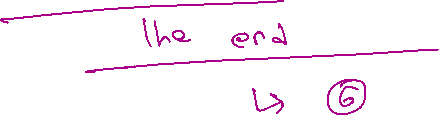 The end
↳ 6